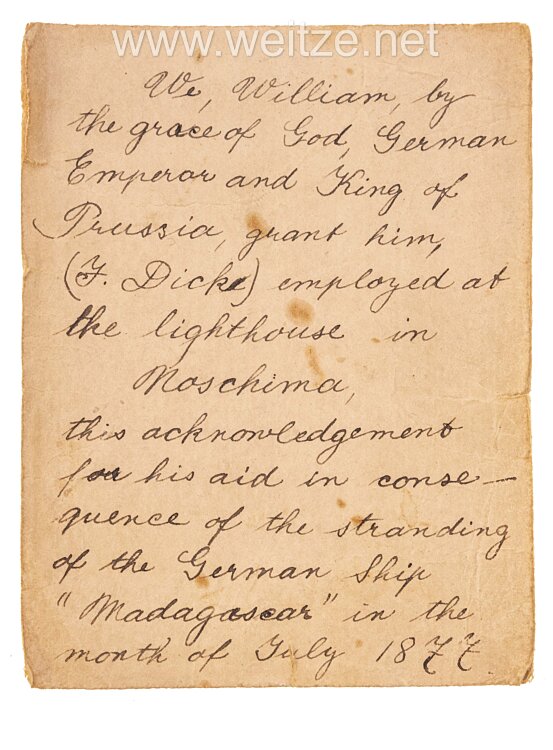 www.weitze.net
We, William, by
the grace of God, German
Emperor and King of
Prussia, grant him,
(F. Dick) employed at
the lighthouse in
Noschima,
this acknowledgement
for his aid in conse-
quence of the stranding
of the German Ship
"Madagascar" in the
month of July 1877.